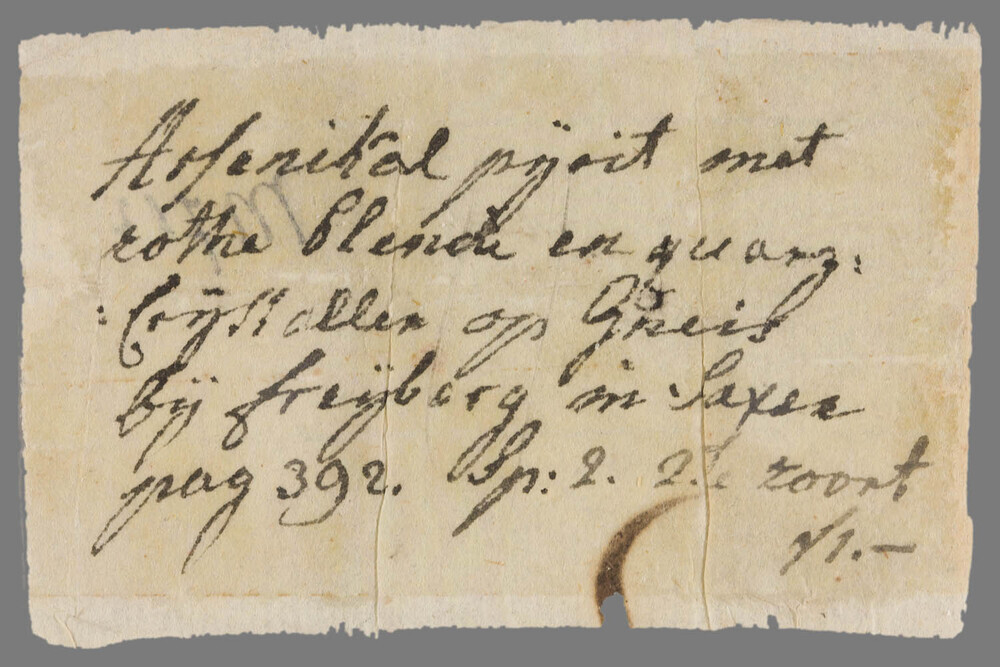 Arsenikal pÿrit met
rothe blende en quarz:
:Crÿstallen op Gneis
bÿ freÿberg in Saxen
pag 392. Sp: 2. 2de zoort
f1.—